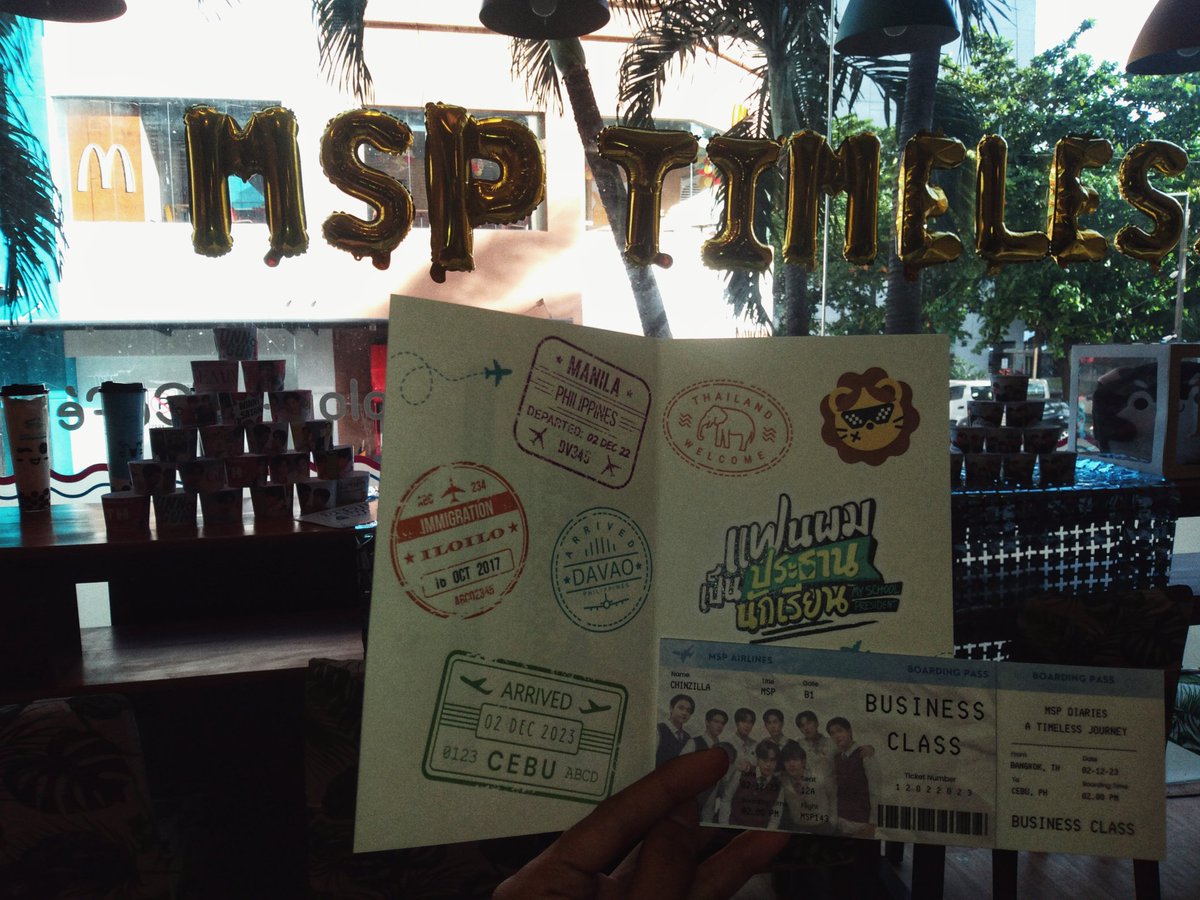 MSP TIMELES
MANILA
PHILIPPINES
DEPARTED: 02 DEC 22
DV345
THAILAND
WELCOME
234
IMMIGRATION
ILOILO
16 OCT 2017
ABCD2345
ARRIVED
DAVAO
PHILIPPINES
แฟนผม
เป็นประธาน
นักเรียน
MY SCHOOL
PRESIDENT
ARRIVED
02 DEC 2023
0123 CEBU ABCD
MSP AIRLINES
BOARDING PASS
Name
CHINZILLA
Title
MSP
Gate
B1
BUSINESS
CLASS
Ticket Number
12022023
12A
02.00 PM
Flight
MSP143
BOARDING PASS
MSP DIARIES
A TIMELESS JOURNEY
From
BANGKOK, TH
Date
02-12-23
To
CEBU, PH
Boarding Time
02.00 PM
BUSINESS CLASS